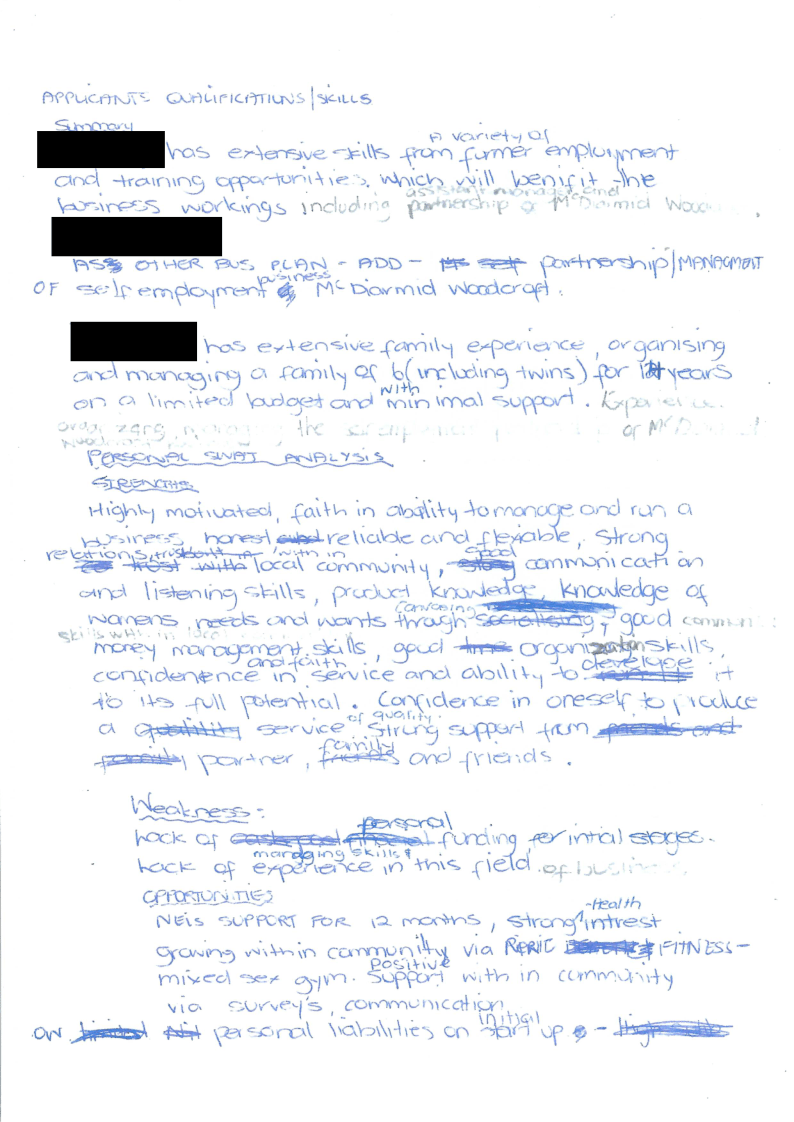 APPLICANTS QUALIFICATIONS/SKILLS
Summary
has extensive skills from a variety of former employment
and training opportunities, which will benifit the
business workings including assistant manager and partnership of McDiarmid
AS OTHER BUS PLAN - ADD - partnership/MANAGMENT
OF self employment business McDiarmid Woodcraft.
has extensive family experience, organising
and managing a family of 6 (including twins) for years
on a limited budget and with minimal support. Experience
organizing the
PERSONAL SWAT ANALYSIS
STRENGTHS
Highly motivated, faith in ability to manage and run a
business, honest and reliable and flexable, strong
relations, trust with in local community, good communication
and listening skills, product knowledge, knowledge of
womens, needs and wants through canvasing socialising, good
skills with in local
money management skills, good time organization skills,
confidenence and faith in service and ability to develope it
to its full potential. Confidence in oneself to produce
a quality service of quality. Strong support from friends and
family partner, family friends and friends.
Weakness:
Lack of personal funding for intial stages.
Lack of managing skills & experience in this field of business
OPPORTUNITIES
NEIS SUPPORT FOR 12 months, strong -Health intrest
growing within community via FITNESS -
mixed sex gym. Positive support with in community
via survey's, communication
personal liabilities on initial start up -